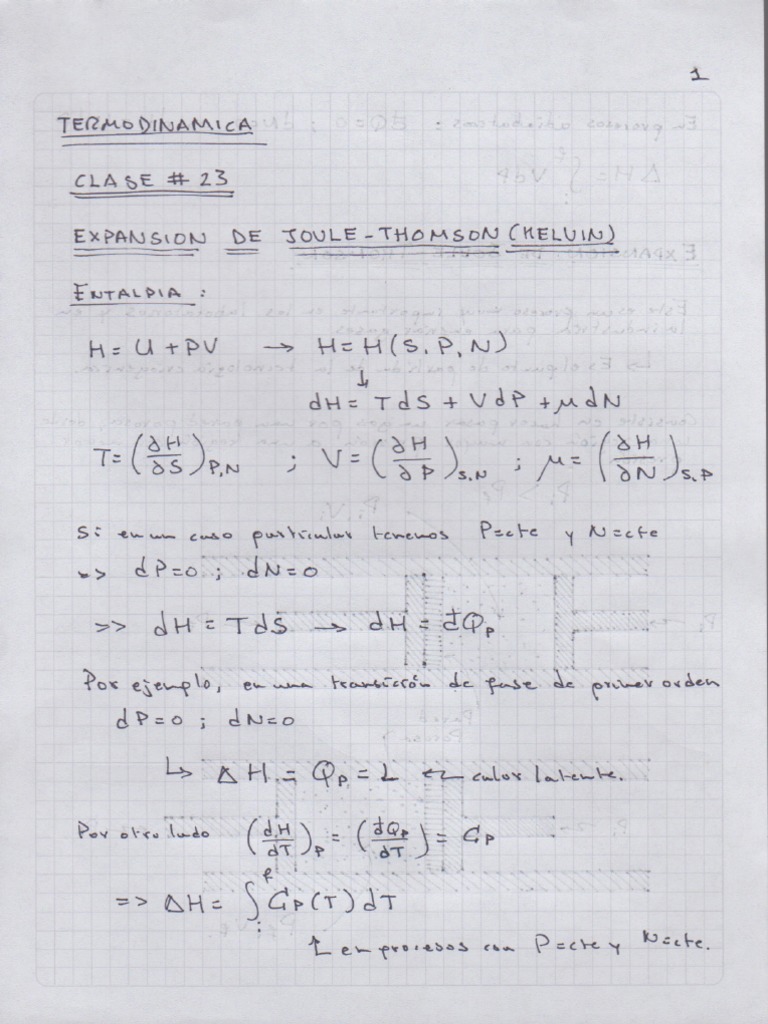 1
TERMODINAMICA
CLASE # 23
EXPANSION DE JOULE-THOMSON (KELVIN)
ENTALPIA :
H = U + PV → H = H(S, P, N)
↓
dH = TdS + VdP + μdN
T = (∂H/∂S)_P,N ; V = (∂H/∂P)_S,N ; μ = (∂H/∂N)_S,P
Si en un caso particular tenemos P=cte y N=cte
=> dP=0 ; dN=0
=> dH = TdS → dH = đQ_P
Por ejemplo, en una transición de fase de primer orden
dP=0 ; dN=0
↳ ΔH = Q_P = L ← calor latente.
Por otro lado (dH/dT)_P = (đQ_P/dT) = C_P
=> ΔH = ∫_i^f C_P(T) dT
↑ en procesos con P=cte y N=cte.